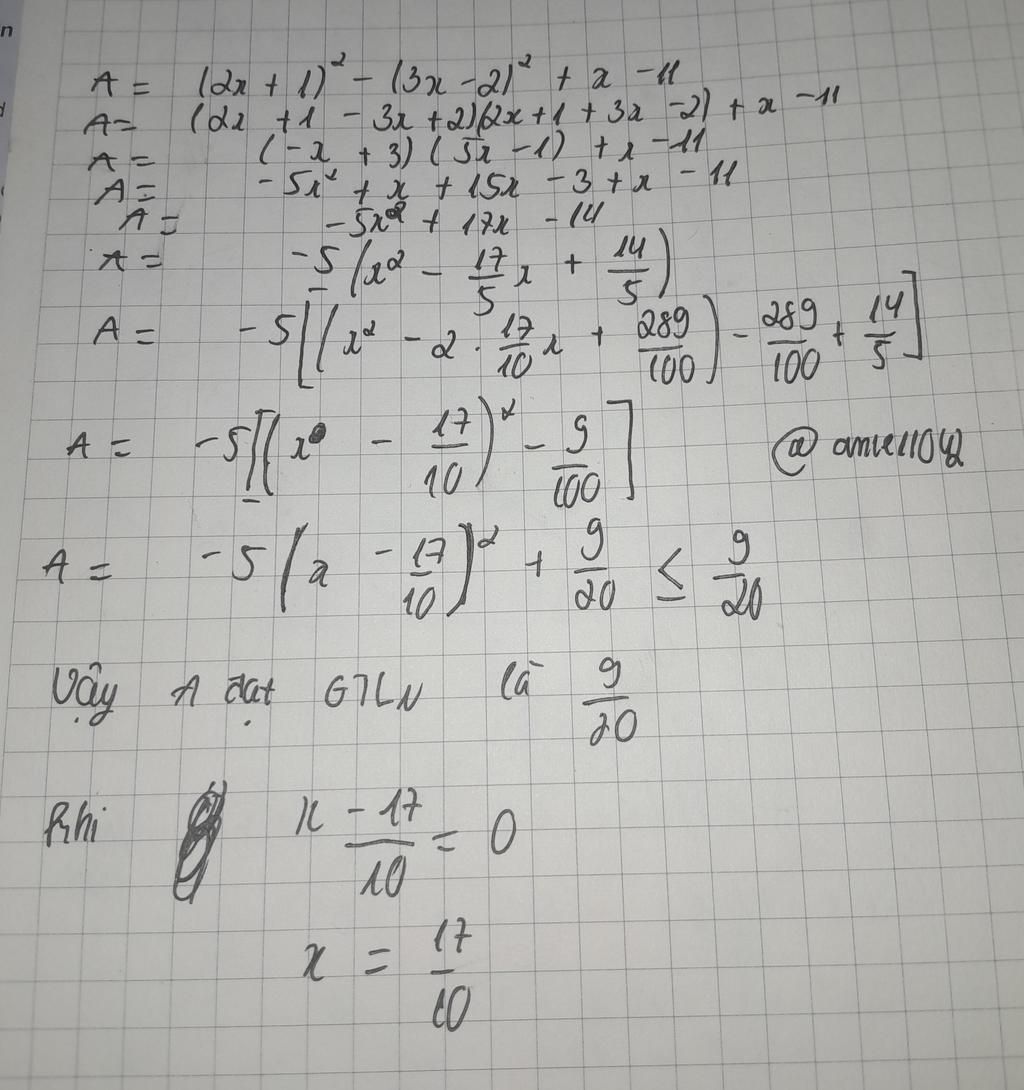 A = (2x + 1)² - (3x - 2)² + x - 11
A = (2x + 1 - 3x + 2)(2x + 1 + 3x - 2) + x - 11
A = (-x + 3)(5x - 1) + x - 11
A = -5x² + x + 15x - 3 + x - 11
A = -5x² + 17x - 14
A = -5(x² - 17/5 x + 14/5)
A = -5[(x² - 2 . 17/10 x + 289/100) - 289/100 + 14/5]
A = -5[(x - 17/10)² - 9/100]
A = -5(x - 17/10)² + 9/20 ≤ 9/20
Vậy A đạt GTLN là 9/20
Khi x - 17/10 = 0
x = 17/10